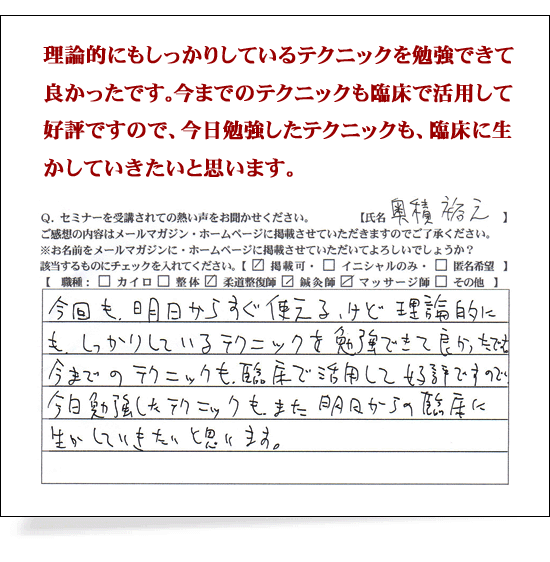 理論的にもしっかりしているテクニックを勉強できて
良かったです。今までのテクニックも臨床で活用して
好評ですので、今日勉強したテクニックも、臨床に生
かしていきたいと思います。
Q. セミナーを受講されての熱い声をお聞かせください。 【氏名 奥積 裕之 】
ご感想の内容はメールマガジン・ホームページに掲載させていただきますのでご了承ください。
※お名前をメールマガジンに・ホームページに掲載させていただいてよろしいでしょうか?
該当するものにチェックを入れてください。【 ☑ 掲載可・ □ イニシャルのみ・ □ 匿名希望 】
【 職種: □ カイロ □ 整体 ☑ 柔道整復師 ☑ 鍼灸師 ☑ マッサージ師 □ その他 】
今回も、明日からすぐ使える、けど 理論的に
も、しっかりしているテクニックを勉強できて良かったです
今までのテクニックも、臨床で活用して好評ですので
今日勉強したテクニックも、また明日からの臨床に
生かしていきたいと思います。